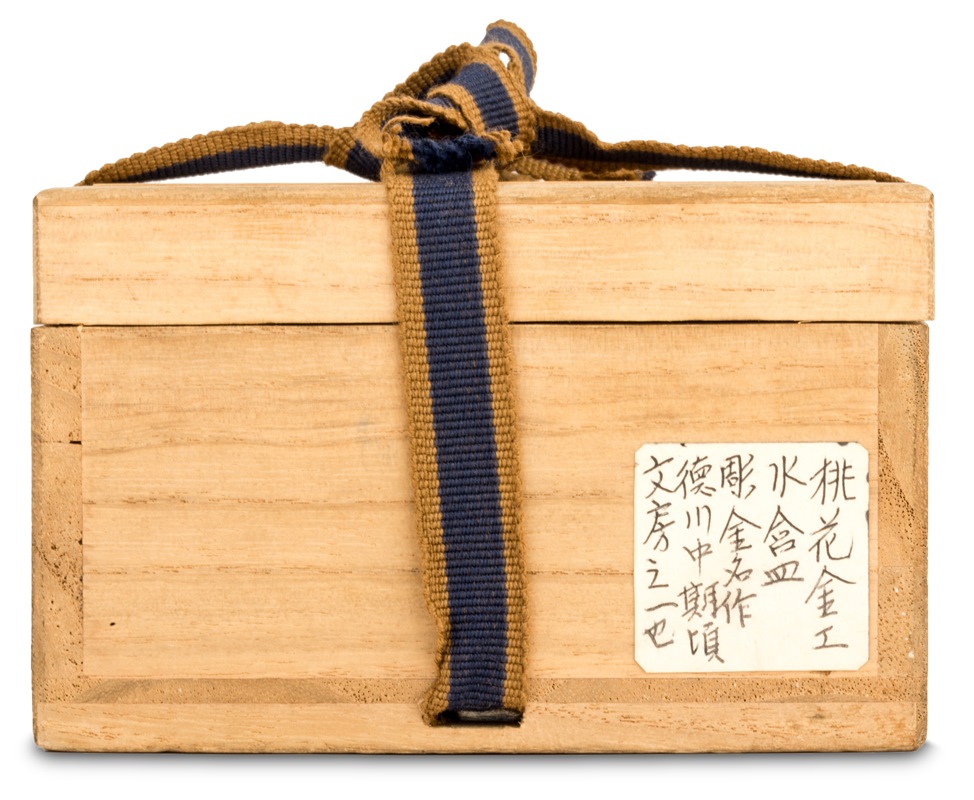 桃花金工
水含皿
彫金名作
德川中期頃
文房之一也